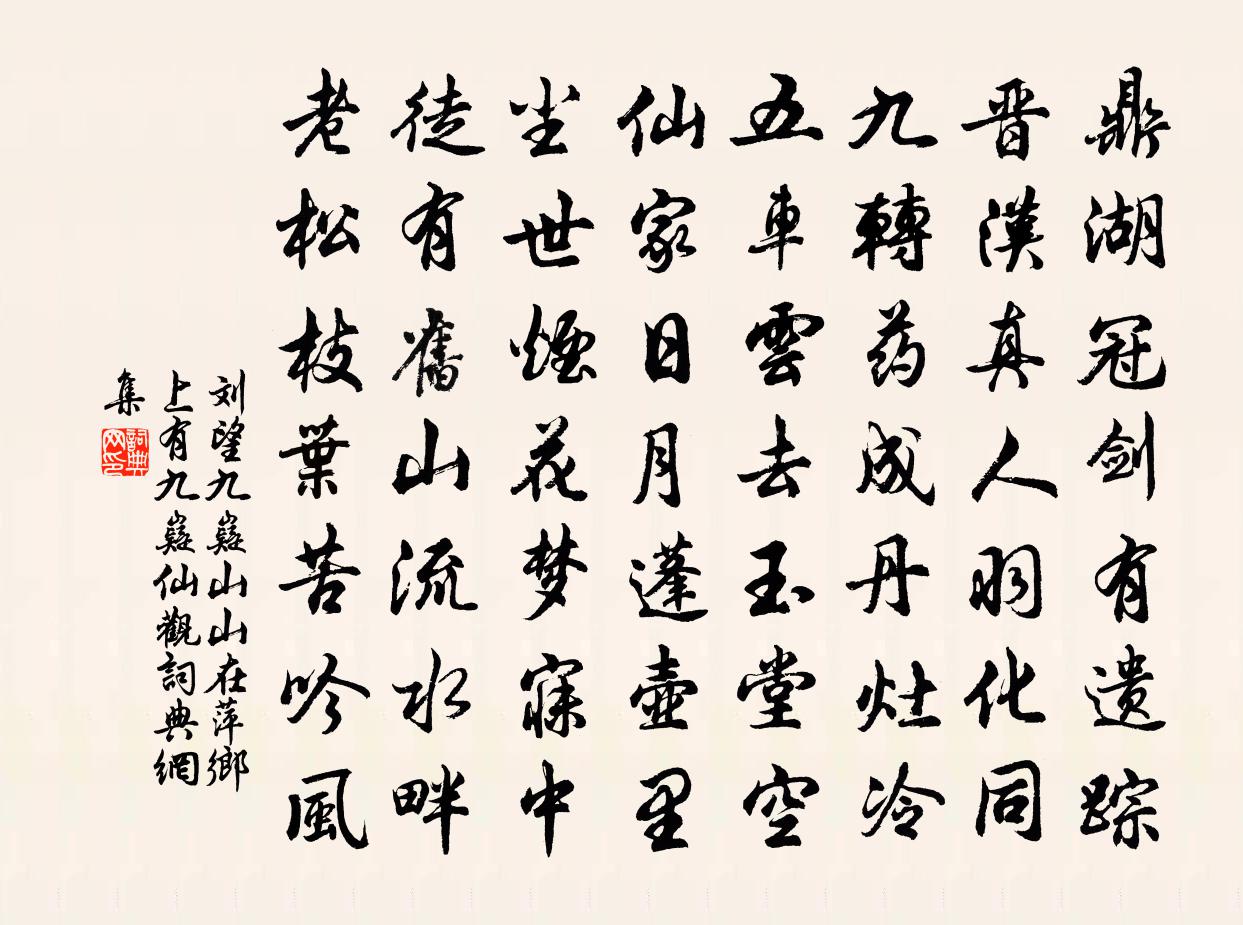 鼎湖冠剑有遗踪
晋漢真人羽化同
九轉药成丹灶冷
五車雲去玉堂空
仙家日月蓬壺里
尘世煙花梦寐中
徒有舊山流水畔
老松枝葉苦吟風
刘望九嶷山山在萍鄉
上有九嶷仙觀詞典網
集
詞典网印